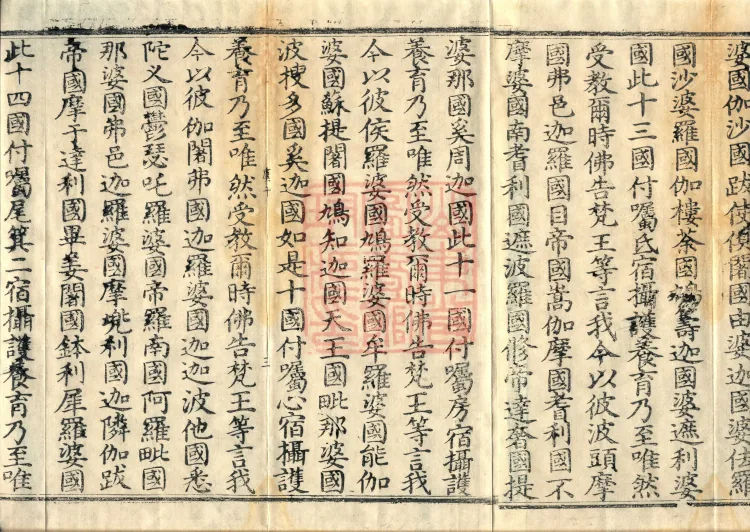 婆國伽沙國跋使俢闍國由婆迦國婆佉羅
國沙婆羅國伽樓荼國鳩籌迦國婆遮利婆
國此十三國付囑氐宿攝護養育乃至唯然
受教爾時佛告梵王等言我今以彼波頭摩
國弗邑迦羅國目帝國嵩伽摩國耆利國不
摩婆國南耆利國遮波羅國修帝達奢國提
婆那國奚周迦國此十一國付囑房宿攝護
養育乃至唯然受教爾時佛告梵王等言我
今以彼俟羅婆國鳩羅婆國牟羅婆國能伽
婆國蘇提闍國鳩知迦國天王國毗那婆國
波搜多國奚迦國如是十國付囑心宿攝護
養育乃至唯然受教爾時佛告梵王等言我
今以彼伽闍弗國迦羅婆國迦迦波他國悉
陀义國鬱瑟吒羅婆國帝羅南國阿羅毗國
那婆國弗邑迦羅婆國摩兠利國迦隣伽跋
帝國摩于達利國畢姜闍國鉢利犀羅婆國
此十四國付囑尾箕二宿攝護養育乃至唯
三